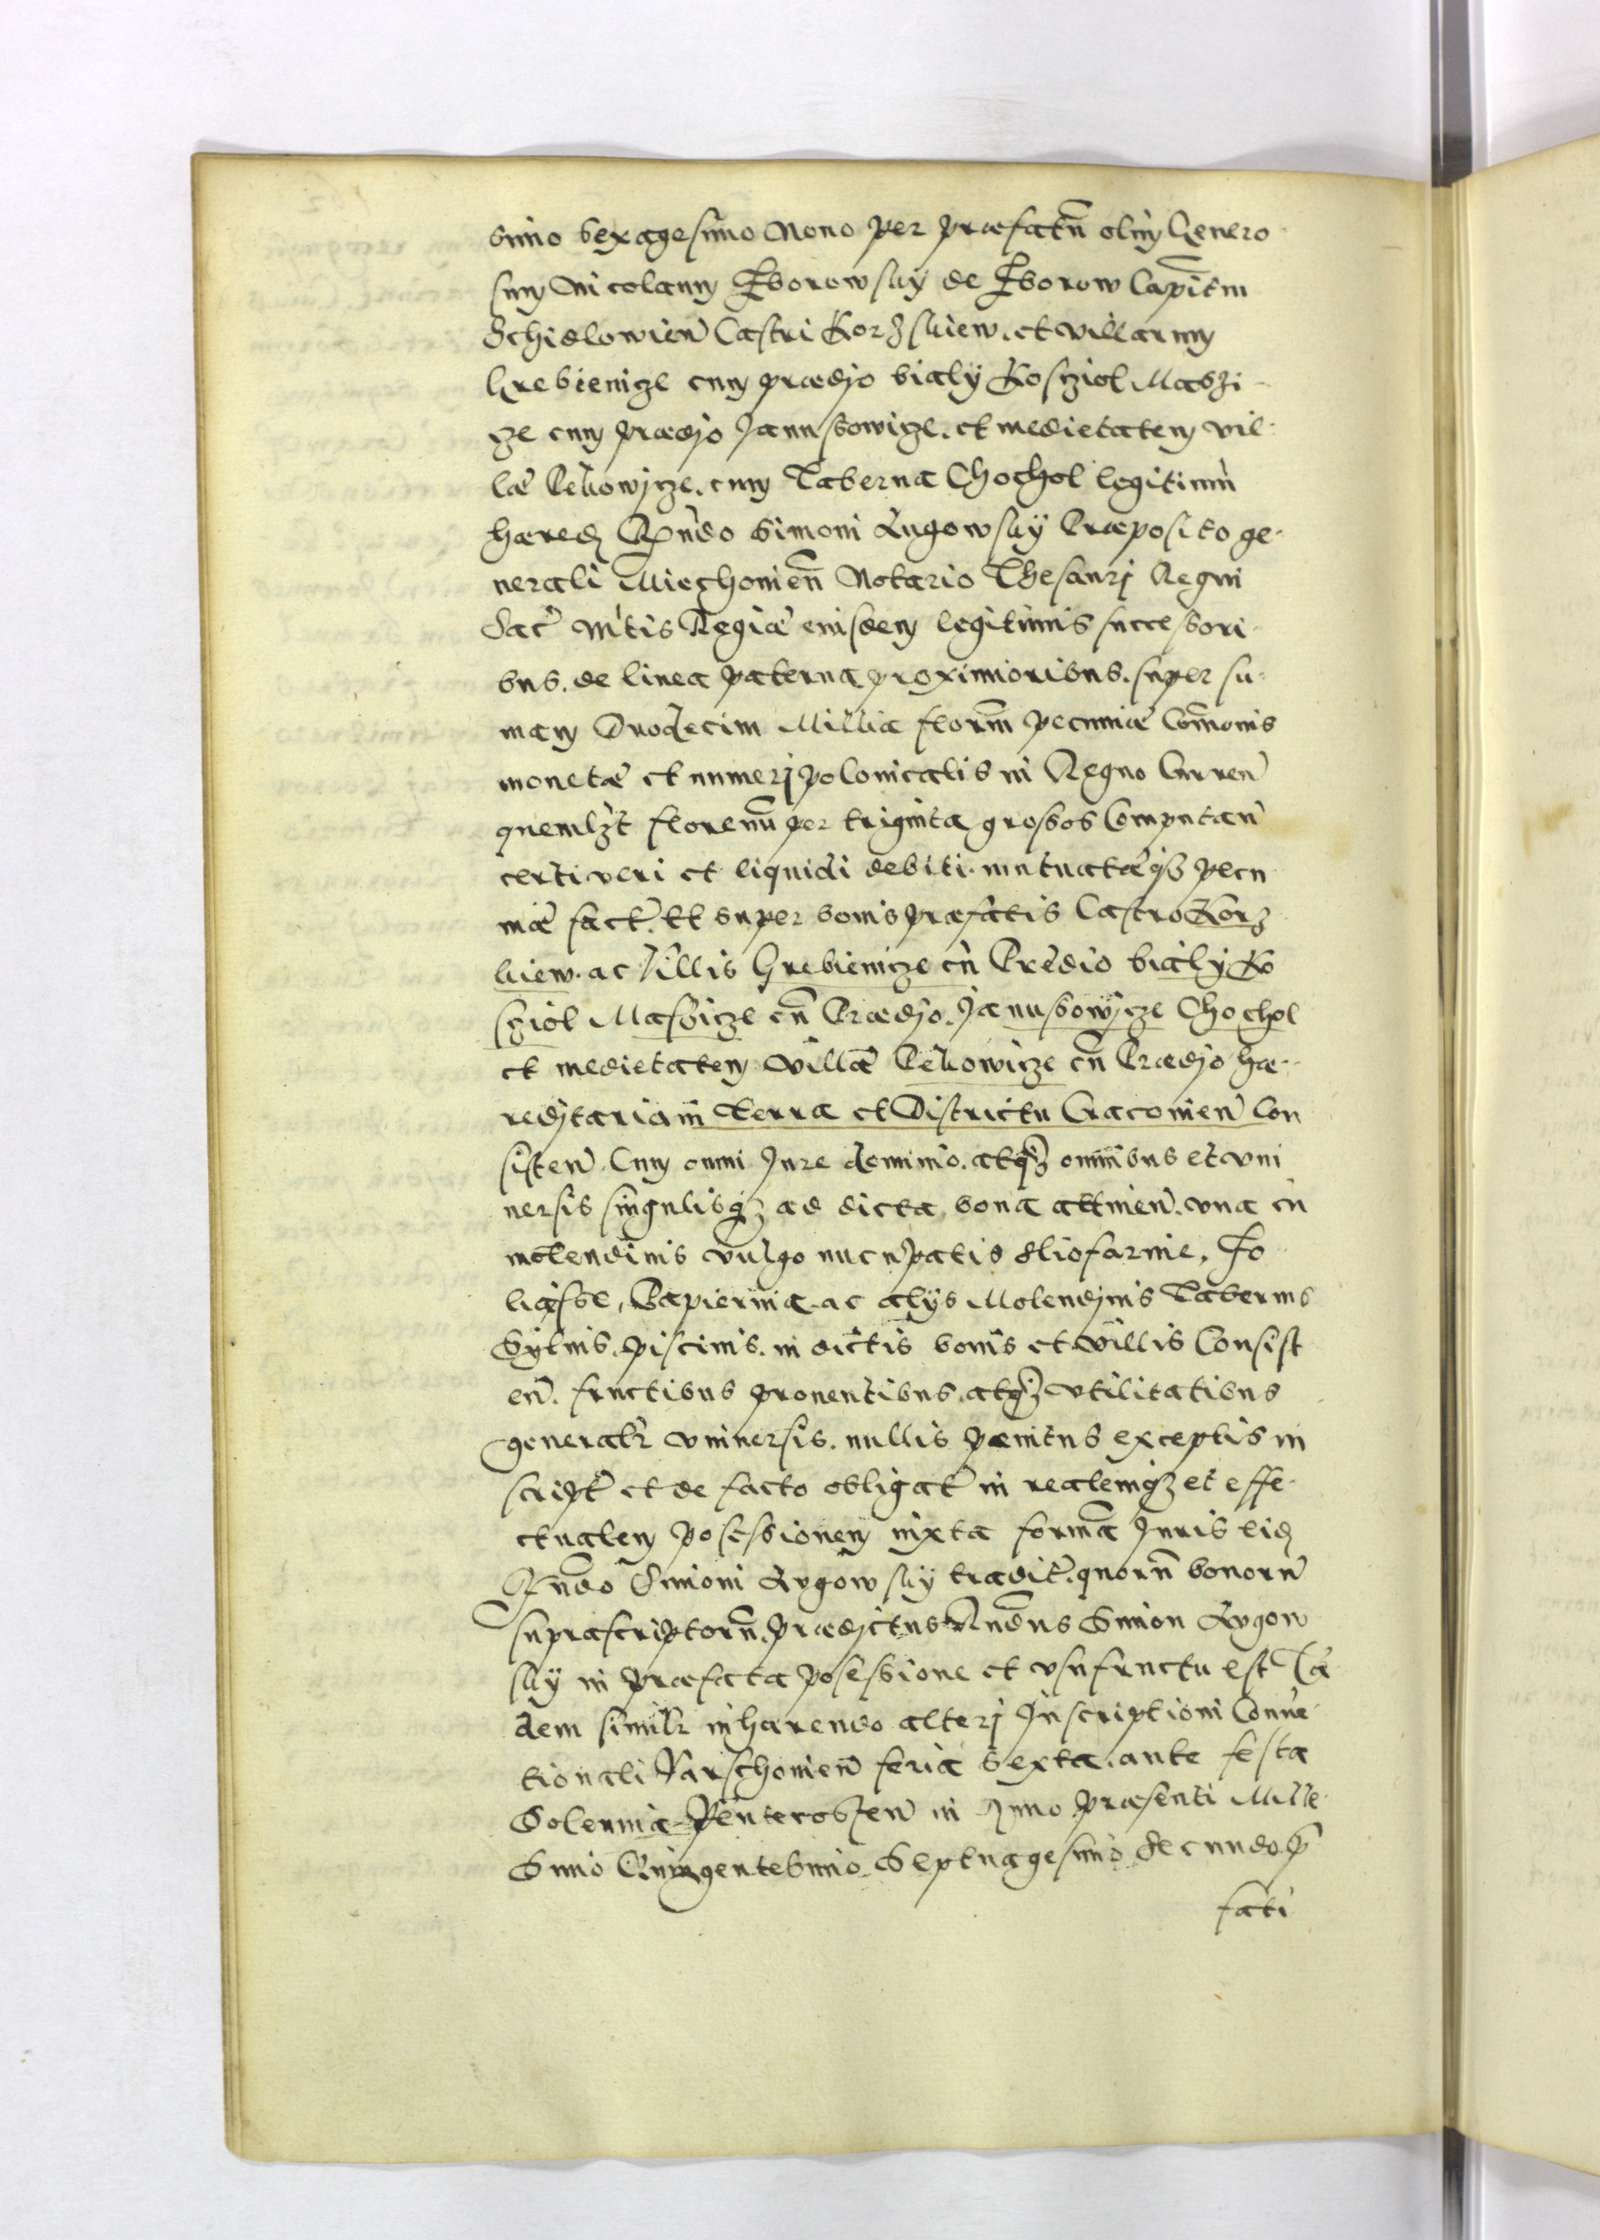 simo sexagesimo Nono per præfatū olim Genero
sum Nicolaum Zborowsky de Zborow Capitm
Schidlowien̄ Castri Korzkiew. et villarum
Grebienicze cum prædjo bialy Koscziol Maszi-
cze cum prædjo Janussowicze. et medietatem vil-
læ Pekowjcze. cum Taberna Chochol legitimū
hæred Rndo Simoni Lugowsky Præposito ge-
nerali Miechouien̄ Notario Thesaurj Regni
Sac Mtis Regiæ eiusdem legitimis successori
bus. de linea paterna proximioribus. super su-
mam Duodecim Millia florm pecuniæ Comonis
monetæ et numerj polonicalis in Regno Curren̄
quemlzt florenū per triginta grossos Computan̄
certi veri et liquidi debiti. mutuatæqz pecu
niæ fact. et super bonis præfatis Castro Korz
kiew. ac Villis Grebienicze cū Prædio bialy Ko
sziol Maszicze cū Prædjo. Janussowjcze Chochol
et medietatem Villæ Pekowicze cū Prædjo hæ-
redjtariam Terra et Districtu Cracouien̄ Con
sisten̄. Cum omni Jure dominio. atqz omnibus et vni
uersis singulisqz ad dicta bona attinen̄. vna cū
molendinis vulgo nucupatis
Papiernia ac alijs Molendjnis Tabernis
Syluis. piscinis. in dictis bonis et villis Consist
en̄. fructibus prouentibus. atqz vtilitatibus
generalr vniuersis. nullis pænitus exceptis in
script et de facto obligat in realemqz et effe-
ctualem possessionem iuxta formā Juris eid
Rndo Simoni Lugowsky tradit. quorū bonorū
suprascriptorū. prædjctus Rndus Simon Lugow
sky in præfata possessione et vsufructu est Tā
dem similr inhærendo alterj Inscriptioni Conue
tionali Varschouien̄ feria Sexta. ante festa
Solennia Pentecosten̄ in Anno præsenti Mille
Simo Quingentesimo Septuagesimo Secundo. p
fati